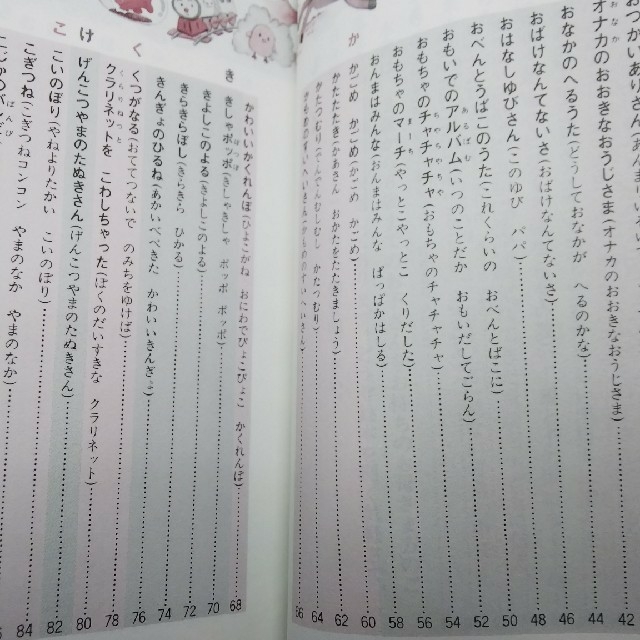 オナカのおおきなおうじさま(オナカのおおきなおうじさま)……44
おなかのへるうた(どうしておなかが へるのかな)……46
おばけなんてないさ(おばけなんてないさ)……48
おはなしゆびさん(このゆび パパ)……50
おべんとうばこのうた(これくらいの おべんとばこに)……52
おもいでのアルバム(いつのことだか おもいだしてごらん)……54
おもちゃのチャチャチャ(おもちゃのチャチャチャ)……56
おもちゃのマーチ(やっとこやっとこ くりだした)……58
おんまはみんな(おんまはみんな ぱっぱかはしる)……60
か
かごめ かごめ(かごめかごめ)……62
かたたたき(かあさん おかたをたたきましょう)……64
かたつむり(でんでんむしむし かたつむり)……66
かわいいかくれんぼ(ひよこがね おにわでぴょこぴょこ かくれんぼ)……68
き
きしゃポッポ(きしゃきしゃ ポッポ ポッポ)……70
きよしこのよる(きよしこのよる)……72
きらきらぼし(きらきら ひかる)……74
きんぎょのひるね(あかいべべきた かわいいきんぎょ)……76
く
くつがなる(おててつないで のみちをゆけば)……78
クラリネットを こわしちゃった(ぼくのだいすきな クラリネット)……80
け
げんこつやまのたぬきさん(げんこつやまのたぬきさん)……82
こ
こいのぼり(やねよりたかい こいのぼり)……84
こぎつね(こぎつねコンコン やまのなか やまのなか)